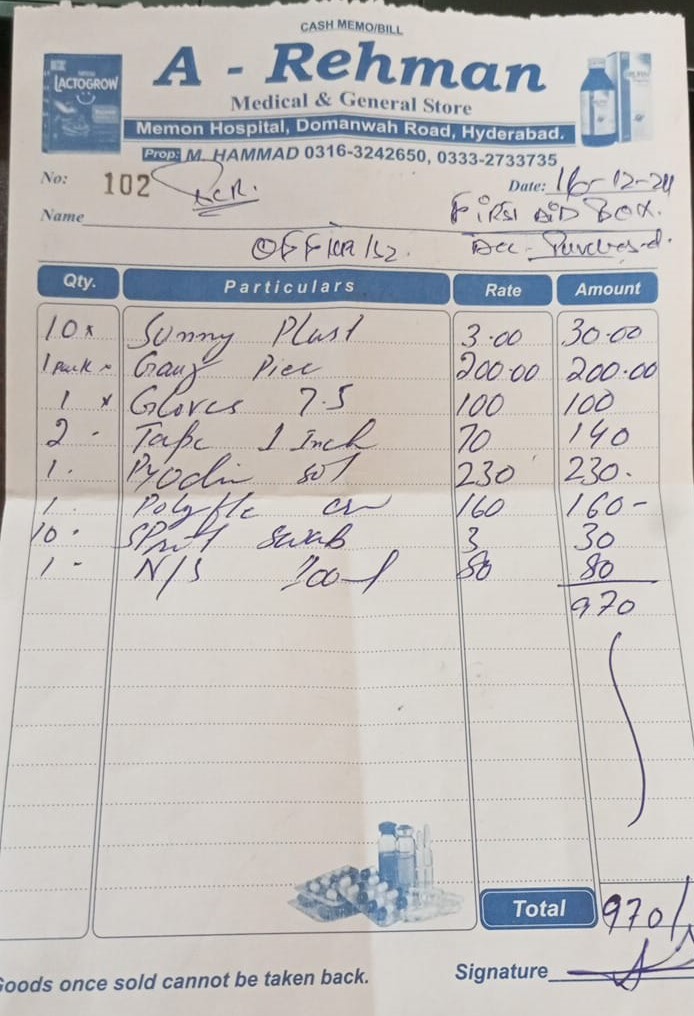 CASH MEMO/BILL
LACTOGROW
A - Rehman
Medical & General Store
Memon Hospital, Domanwah Road, Hyderabad.
Prop: M. HAMMAD 0316-3242650, 0333-2733735
No: 102 Date: 16-12-24
Name First AiD Box.
Purchased.
Qty. Particulars Rate Amount
10 x Sunny Plast 3.00 30.00
1 Pack Gauz Piec 200.00 200.00
1 x Gloves 7.5 100 100
2 - Tape 1 Inch 70 140
1. Pyodin sol 230 230.
1. Polyfle 160 160-
10. SPrit Swab 3 30
1 - N/S 100ml 80 80
970
Total 970/
Goods once sold cannot be taken back. Signature